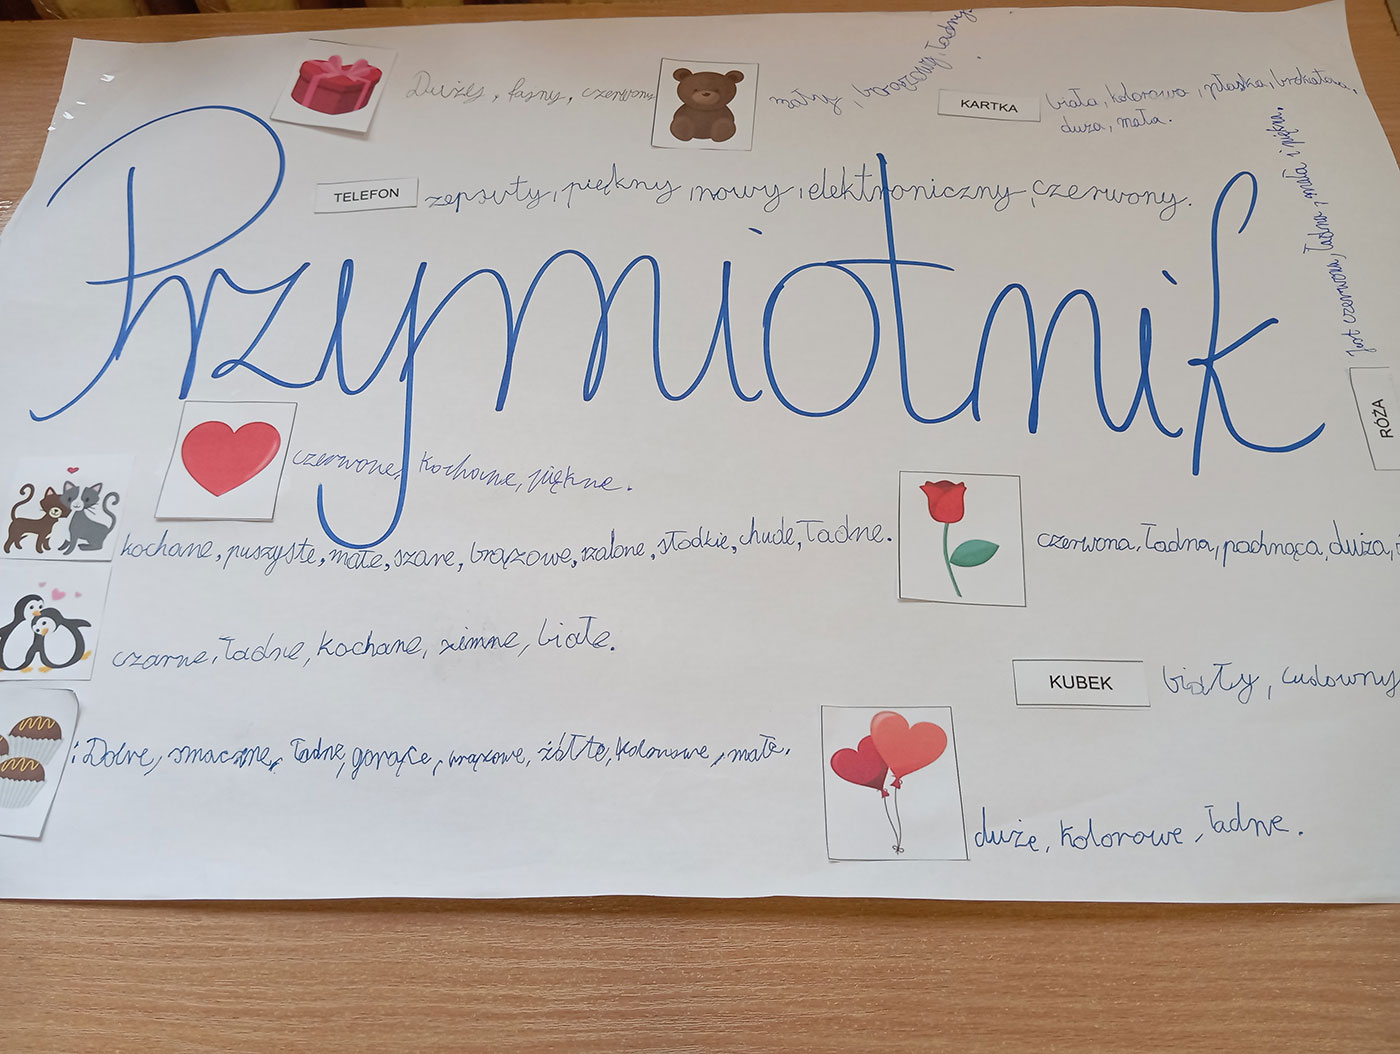 Dużej, fajny, czerwony
mały, brązowy, ładny.
KARTKA
biała, kolorowa, płaska, brokatowa,
duża, mała.
TELEFON
zepsuty, piękny, nowy, elektroniczny, czerwony.
Przymiotnik
Jest czerwona, ładna, mała i piękna.
RÓŻA
czerwone, kochane, piękne.
kochane, puszyste, małe, szare, brązowe, szalone, słodkie, chude, ładne.
czerwona, ładna, pachnąca, duża,
czarne, ładne, kochane, zimne, białe.
KUBEK
biały, cudowny
: Dobre, smaczne, ładne, gorące, brązowe, żółte, kolorowe, małe.
duże, kolorowe, ładne.